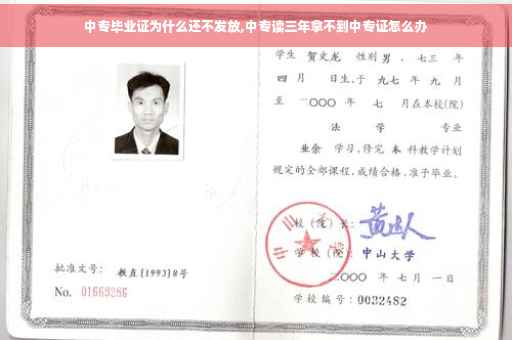 中专毕业证为什么还不发放,中专读三年拿不到中专证怎么办
学生 贺文龙 性别 男 、七三 年
四 月 日生,于 九七 年 九 月
至 二〇〇〇 年 七 月在本校(院)
法 学 专业
业余 学习,修完 本 科教学计划
规定的全部课程,成绩合格,准予毕业。
校(院)长:
学 校(院): 中山大学
二〇〇〇 年 七 月 一 日
批准文号: 教直[1993]8号
No. 01663286
学校编号: 0032482